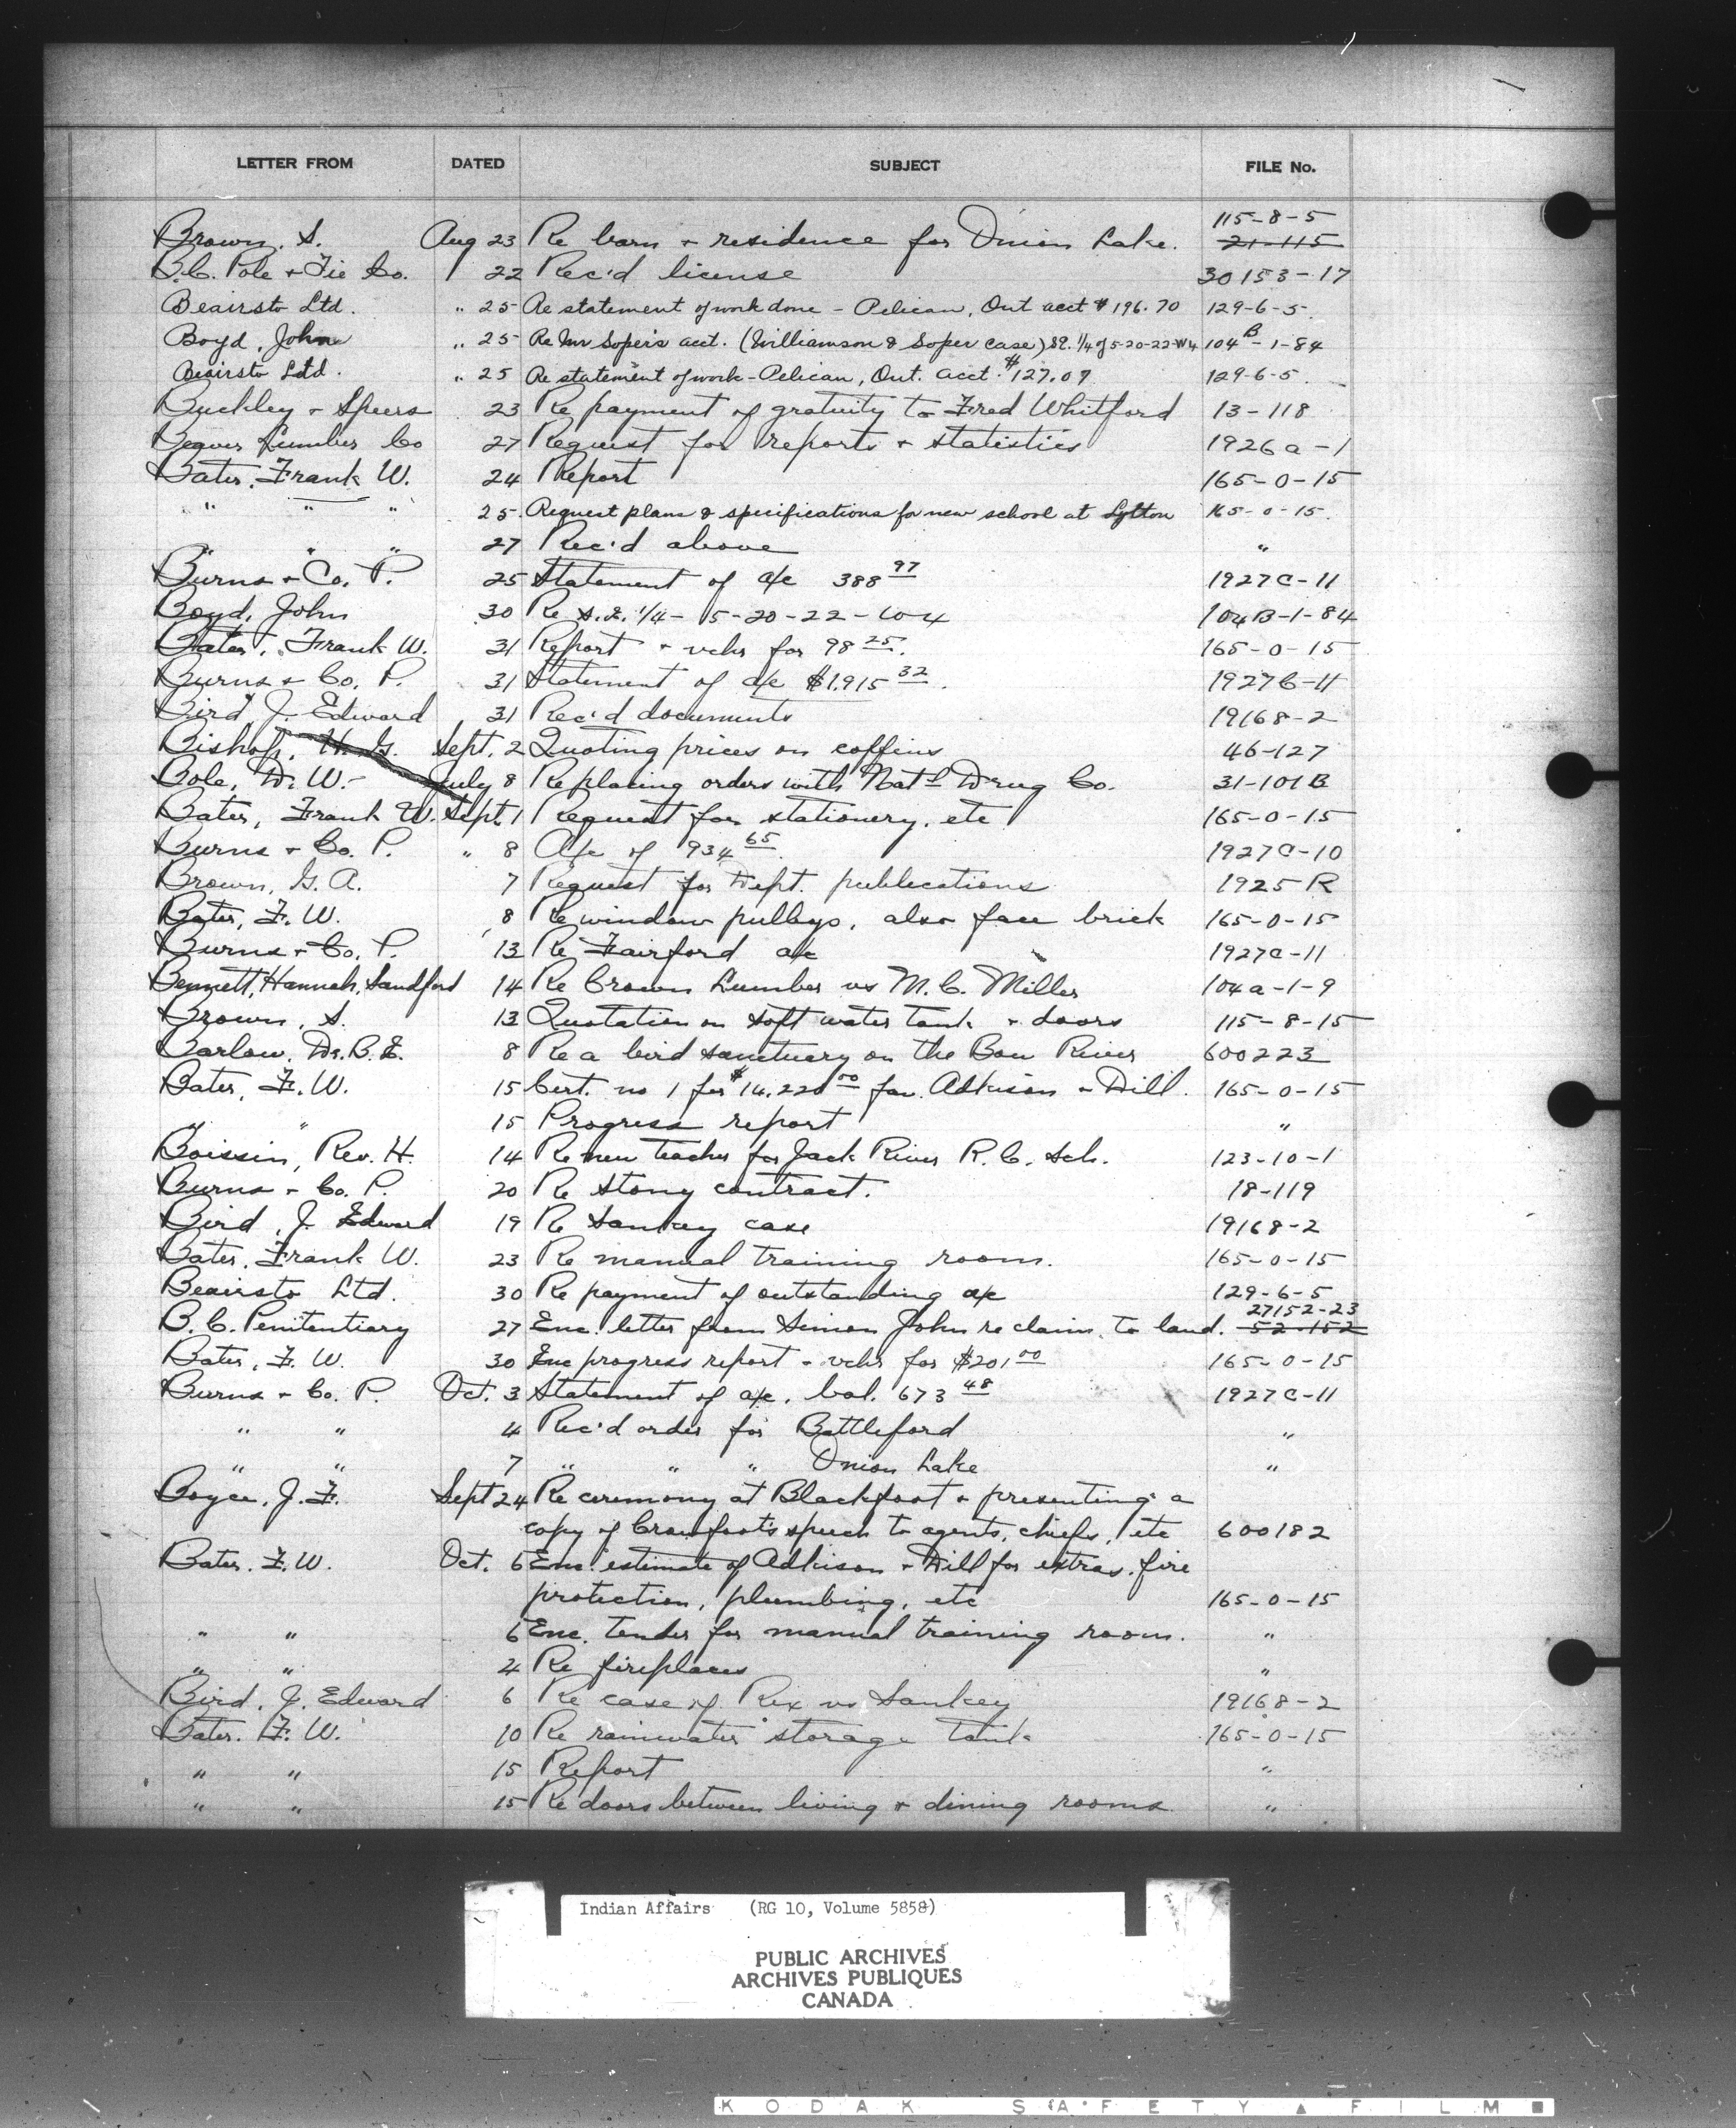 LETTER FROM DATED SUBJECT FILE No.
115-8-5
Brown, S. Aug 23 Re barn + residence for Onion Lake. 21-115
B.C. Pole + Tie Co. 22 Rec'd license 30153-17
Beairsto Ltd. " 25 Re statement of work done - Pelican, Ont acct $196.70 129-6-5.
Boyd, John " 25 Re Mr Soper's acct. (Williamson & Soper case) SE. 1/4 of 5-20-22-W4 104B-1-84
Beairsto Ltd. " 25 Re statement of work - Pelican, Ont. acct. $127.07 129-6-5.
Buckley + Speers 23 Re payment of gratuity to Fred Whitford 13-118
Beaver Lumber Co 27 Request for reports + statistics 1926a-1
Bates, Frank W. 24 Report 165-0-15
" " " 25. Request plans & specifications for new school at Lytton 165-0-15.
" " " 27 Rec'd above "
Burns + Co. P. 25 Statement of a/c 388 97 1927C-11
Boyd, John 30 Re S.E. 1/4 - 5-20-22-W4 104B-1-84
Bates, Frank W. 31 Report + vchs for 98 25. 165-0-15
Burns + Co. P. 31 Statement of a/c $1,915 32. 1927C-11
Bird, J. Edward 31 Rec'd documents 19168-2
Bishop, H. G. Sept. 2 Quoting prices on coffins 46-127
Bole, D. W. - July 8 Re placing orders with Nat'l Drug Co. 31-101B
Bates, Frank W. Sept. 1 Request for stationery, etc 165-0-15
Burns + Co. P. " 8 A/c of 934 65 1927C-10
Brown, G. A. 7 Request for Dept. publications 1925 R
Bates, F. W. 8 Re window pulleys, also face brick 165-0-15
Burns + Co. P. 13 Re Fairford a/c 1927C-11
Bennett, Hannah, Sandford 14 Re Crown Lumber vs M. C. Miller 104a-1-9
Brown, S. 13 Quotation on soft water tank + doors 115-8-15
Barlow, Dr. B. E. 8 Re a bird sanctuary on the Bow River 600223
Bates, F. W. 15 Cert. no 1 for $14,220 00 fav. Adkison + Dill. 165-0-15
" " 15 Progress report "
Boissin, Rev. H. 14 Re new teacher for Jack River R. C. Sch. 123-10-1
Burns + Co. P. 20 Re Stony contract. 18-119
Bird, J. Edward 19 Re Sankey case 19168-2
Bates, Frank W. 23 Re manual training room. 165-0-15
Beairsto Ltd. 30 Re payment of outstanding a/c 129-6-5
27152-23
B. C. Penitentiary 27 Enc. letter from Simon John re claim to land. 52-152
Bates, F. W. 30 Enc progress report + vchs for $201 00 165-0-15
Burns + Co. P. Oct. 3 Statement of a/c, bal. 673 48 1927C-11
" " 4 Rec'd order for Battleford "
" " 7 " " " Onion Lake "
Boyce, J. F. Sept 24 Re ceremony at Blackfoot + presenting a
copy of Crowfoot's speech to agents, chiefs, etc 600182
Bates, F. W. Oct. 6 Enc. estimate of Adkison + Dill for extras, fire
protection, plumbing, etc 165-0-15
" " 6 Enc. tender for manual training room. "
" " 4 Re fireplaces "
Bird, J. Edward 6 Re case of Rex vs Sankey 19168-2
Bates. F. W. 10 Re rainwater storage tank 165-0-15
" " 15 Report "
" " 15 Re doors between living + dining rooms. "
Indian Affairs (RG 10, Volume 5858)
PUBLIC ARCHIVES
ARCHIVES PUBLIQUES
CANADA
KODAK SAFETY FILM